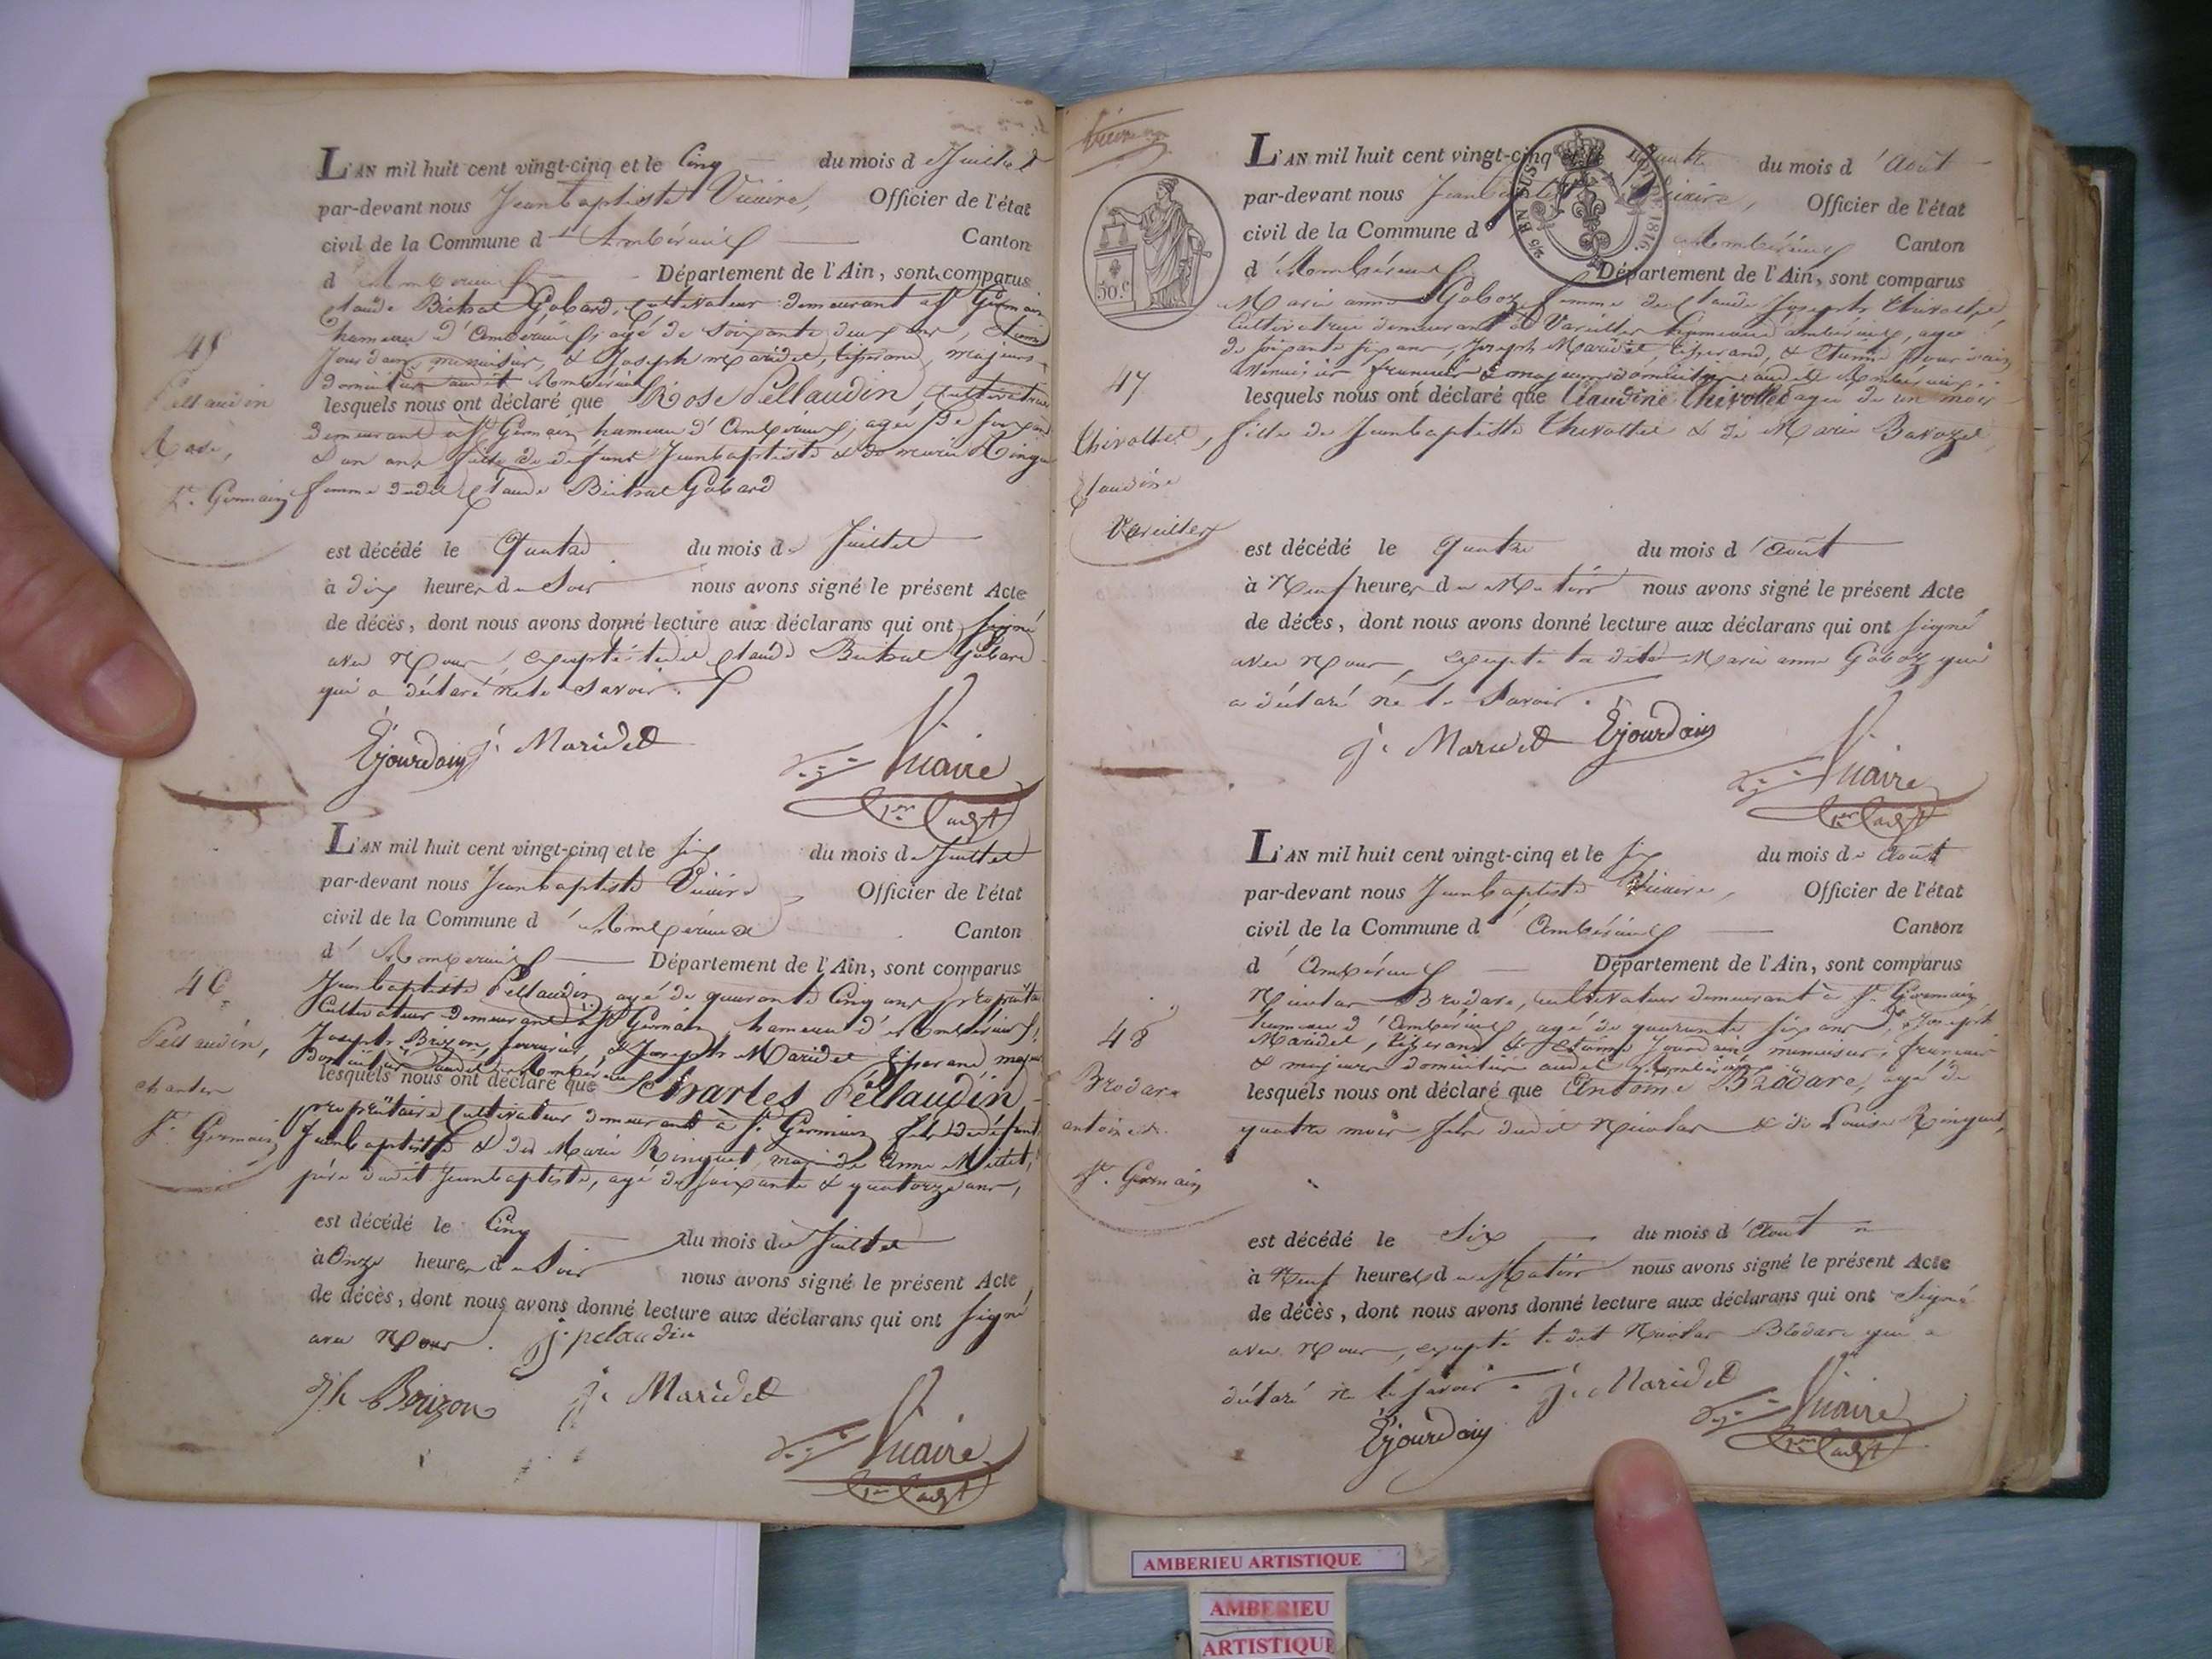 L'AN mil huit cent vingt-cinq et le Cinq du mois de Juillet
par-devant nous Jean baptiste Vicaire, Officier de l'état
civil de la Commune d'Ambérieux Canton
d'Ambérieux Département de l'Ain, sont comparus
Claude Gobard, Cultivateur demeurant à St Germain
hameau d'Ambérieux, agé de soixante deux ans, Etienne
Jourdain, menuisier, & Joseph Maridet, tisserand, majeurs
domiciliés audit Ambérieux
45
Pellaudin
Rose,
St. Germain
lesquels nous ont déclaré que Rose Pellaudin, Cultivatrice
demeurant à St Germain hameau d'Ambérieux, agée de soixante
& un ans fille de défunt Jean baptiste & de Marie Ringuet
femme dudit Claude Gobard
est décédé le Quatre du mois de Juillet
à dix heures du Soir nous avons signé le présent Acte
de décès, dont nous avons donné lecture aux déclarans qui ont signé
avec Nous, excepté ledit Claude Gobard
qui a déclaré ne le savoir.
Ejourdain j. Maridet Vicaire
L'AN mil huit cent vingt-cinq et le six du mois de Juillet
par-devant nous Jean baptiste Vicaire, Officier de l'état
civil de la Commune d'Ambérieux Canton
d'Ambérieux Département de l'Ain, sont comparus
46
Pellaudin,
charles
St. Germain
Jean baptiste Pellaudin, agé de quarante Cinq ans, propriétaire
Cultivateur demeurant à St Germain, hameau d'Ambérieux,
Joseph Brizon, & Joseph Maridet tisserand, majeurs
domiciliés audit Ambérieux
lesquels nous ont déclaré que Charles Pellaudin
propriétaire Cultivateur demeurant à St. Germain fils de défunt
Jean baptiste & de Marie Ringuet, mari de Anne Millet,
père dudit Jean baptiste, agé de soixante & quatorze ans,
est décédé le Cinq du mois de Juillet
à Onze heures du Soir nous avons signé le présent Acte
de décès, dont nous avons donné lecture aux déclarans qui ont signé
avec Nous. j. pelaudin
Jh Brizon j. Maridet Vicaire
L'AN mil huit cent vingt-cinq et le Quatre du mois d'Août
par-devant nous Jean baptiste Vicaire, Officier de l'état
civil de la Commune d'Ambérieux Canton
d'Ambérieux Département de l'Ain, sont comparus
50.c
1816.
Marie anne Goboz femme de Claude Joseph Thévollet
Cultivatrice demeurant à Vareilles hameau d'ambérieux, agée
de soixante six ans, Joseph Maridet, tisserand, & Etienne Jourdain
menuisier, français & majeurs domiciliés audit Ambérieux.
47
Thivollet,
Claudine
Vareilles
lesquels nous ont déclaré que Claudine Thivollet agée de un mois
fille de Jean baptiste Thevollet & de Marie Bavozet
est décédé le Quatre du mois d'août
à Neuf heures du Matin nous avons signé le présent Acte
de décès, dont nous avons donné lecture aux déclarans qui ont signé
avec Nous, excepté la dite Marie anne Goboz qui
a déclaré ne le Savoir.
j. Maridet Ejourdain
Vicaire
L'AN mil huit cent vingt-cinq et le six du mois de Août
par-devant nous Jean baptiste Vicaire, Officier de l'état
civil de la Commune d'Ambérieux Canton
d'Ambérieux Département de l'Ain, sont comparus
Nicolas Brodare, cultivateur demeurant à St. Germain
hameau d'Ambérieux, agé de quarante six ans, Joseph
Maridet, tisserand & Etienne Jourdain menuisier, français
& majeurs domiciliés audit Ambérieux
48
Brodare
antoine.
St. Germain
lesquels nous ont déclaré que Antoine Brodare, agé de
quatre mois fils dudit Nicolas & de Louise Ringuet,
est décédé le Six du mois d'Août
à Neuf heures du Matin nous avons signé le présent Acte
de décès, dont nous avons donné lecture aux déclarans qui ont Signé
avec Nous, excepté le dit Nicolas Brodare qui a
déclaré ne le savoir. j. Maridet
Ejourdain Vicaire
AMBERIEU ARTISTIQUE
AMBERIEU
ARTISTIQUE